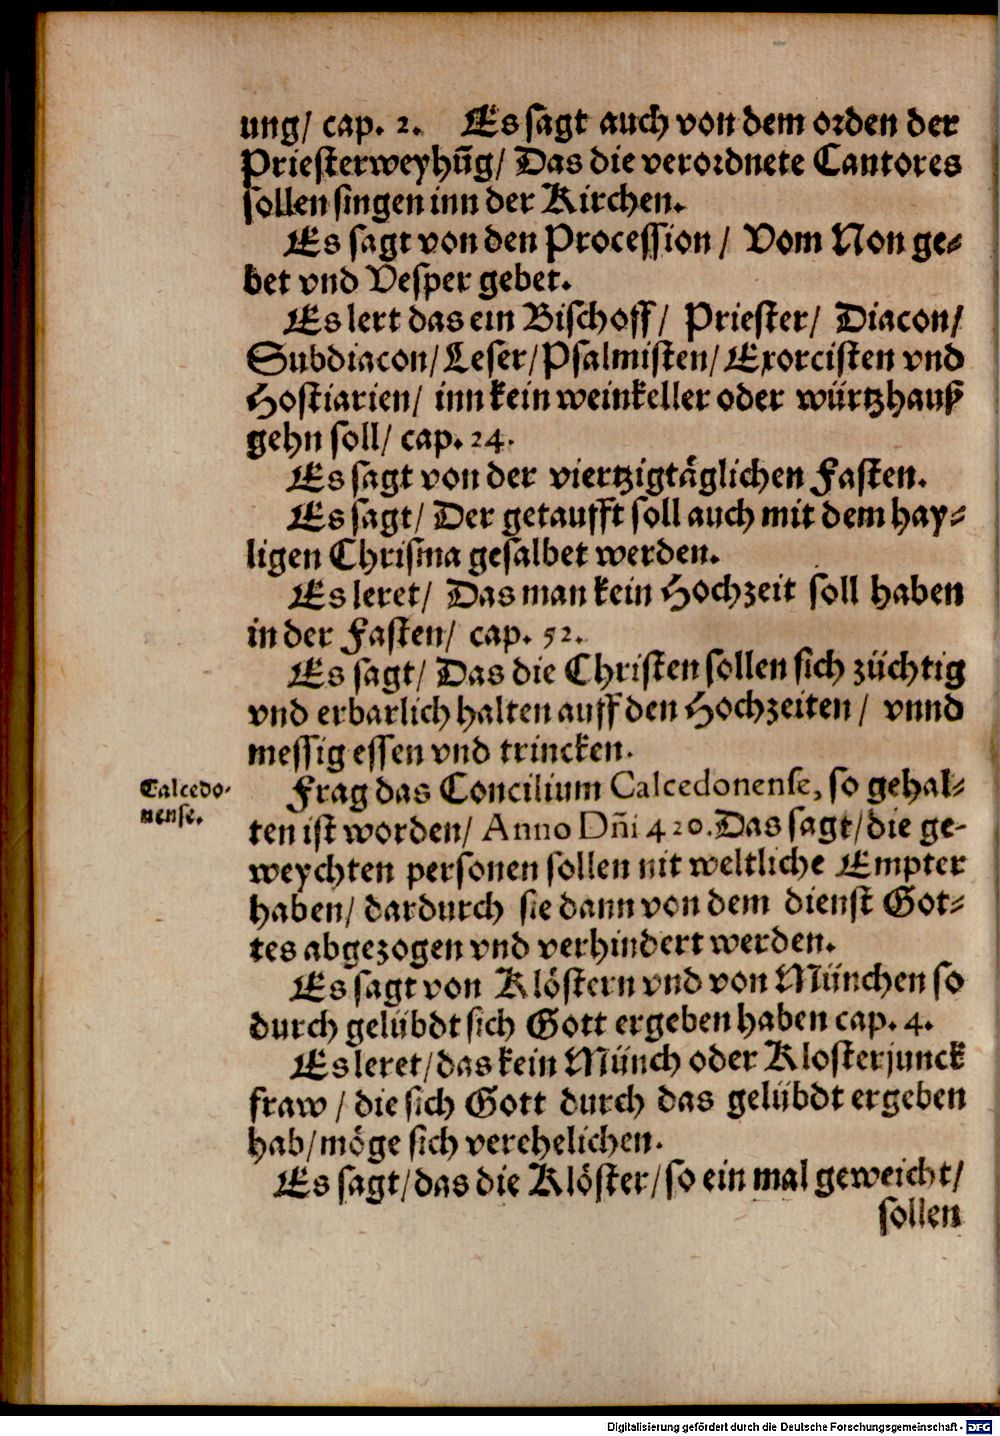 ung/ cap. 2. Es sagt auch von dem orden der
Priesterweyhūg/ Das die verordnete Cantores
sollen singen inn der Kirchen.
Es sagt von den Procession/ Vom Non ge⸗
bet vnd Vesper gebet.
Es lert das ein Bischoff/ Priester/ Diacon/
Subdiacon/ Leser/ Psalmisten/ Exorcisten vnd
Hostiarien/ inn kein weinkeller oder würtzhauß
gehn soll/ cap. 24.
Es sagt von der viertzigtäglichen Fasten.
Es sagt/ Der getaufft soll auch mit dem hay⸗
ligen Chrisma gesalbet werden.
Es leret/ Das man kein Hochzeit soll haben
in der Fasten/ cap. 52.
Es sagt/ Das die Christen sollen sich züchtig
vnd erbarlich halten auff den Hochzeiten/ vnnd
messig essen vnd trincken.
Calcedo⸗
nense.
Frag das Concilium Calcedonense, so gehal⸗
ten ist worden/ Anno Dñi 420. Das sagt/ die ge⸗
weychten personen sollen nit weltliche Empter
haben/ dardurch sie dann von dem dienst Got⸗
tes abgezogen vnd verhindert werden.
Es sagt von Klöstern vnd von München so
durch gelübdt sich Gott ergeben haben cap. 4.
Es leret/ das kein Münch oder Klosterjunck
fraw/ die sich Gott durch das gelübdt ergeben
hab/ möge sich verehelichen.
Es sagt/ das die Klöster/ so ein mal geweicht/
sollen
Digitalisierung gefördert durch die Deutsche Forschungsgemeinschaft - DFG